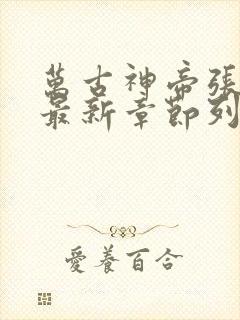 萬古神帝張
最新章節列
愛養百合